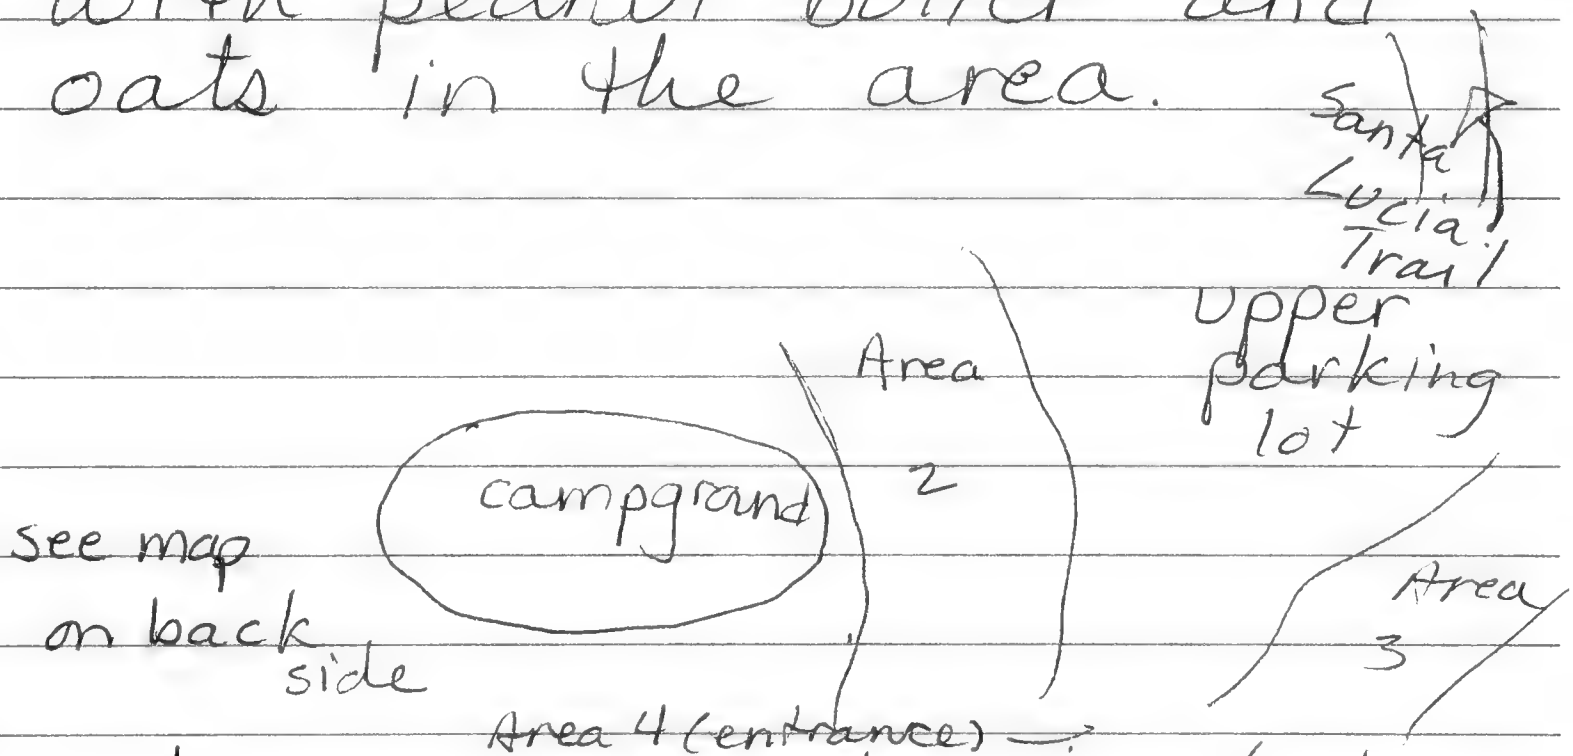 with peanut
oats in the area.
Santa
Lucia
Trail
upper
parking
lot
Area
2
campground
see map
on back
side
Area
3
Area 4 (entrance)